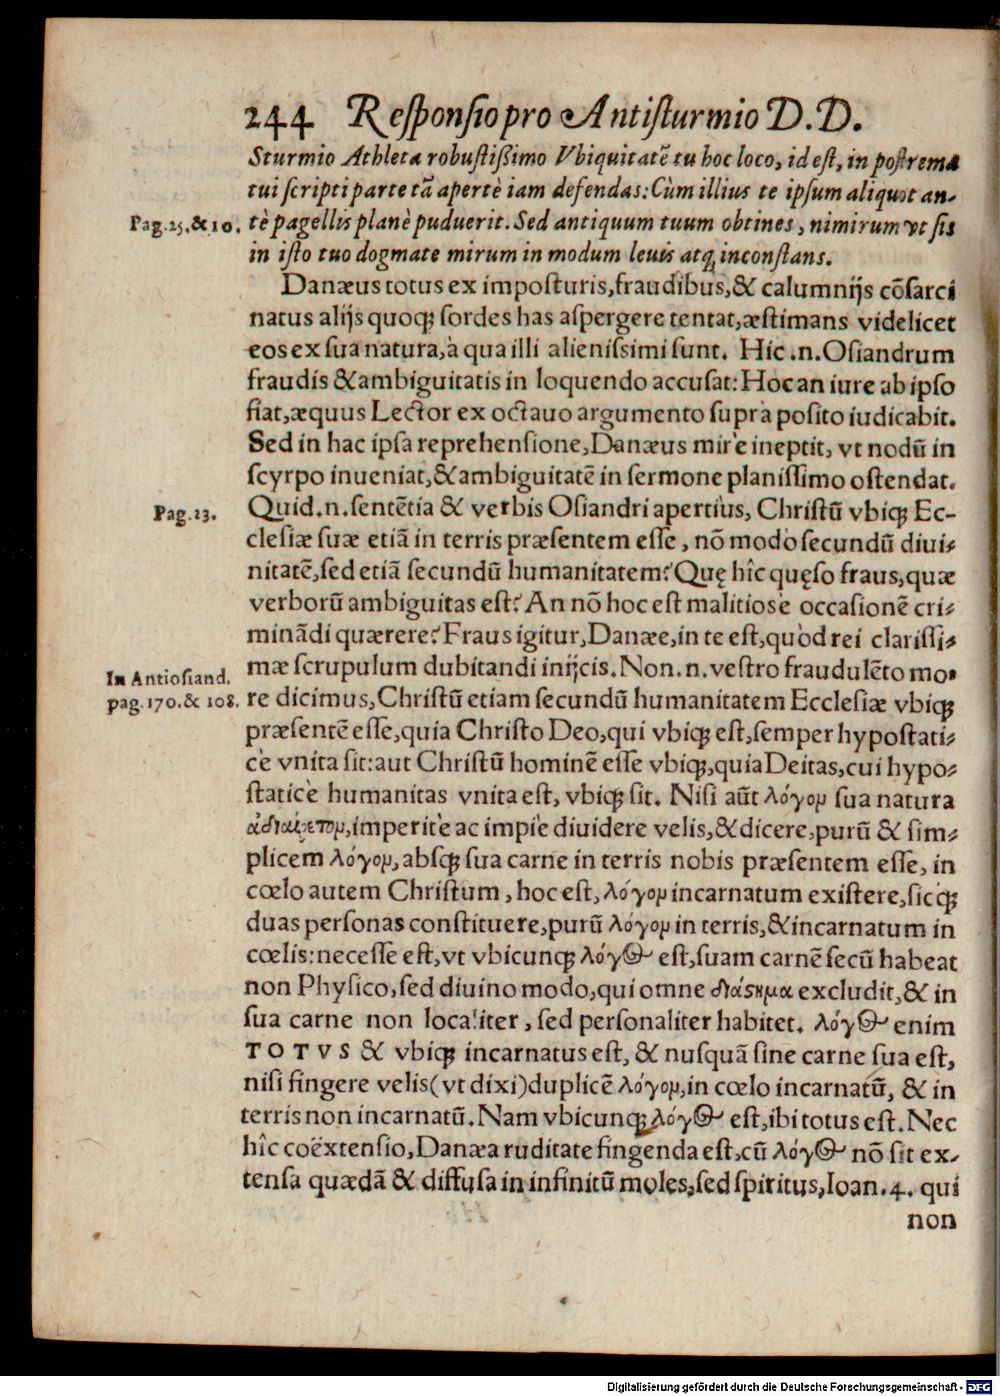 244 Responsio pro Antisturmio D.D.
Sturmio Athleta robustißimo Vbiquitatē tu hoc loco, id est, in postrema
tui scripti parte tā apertè iam defendas: Cùm illius te ipsum aliquot an-
Pag.25.&10. tè pagellis planè puduerit. Sed antiquum tuum obtines, nimirum vt sis
in isto tuo dogmate mirum in modum leuis atq; inconstans.
Danæus totus ex imposturis, fraudibus, & calumnijs cōsarci
natus alijs quoq; sordes has aspergere tentat, æstimans videlicet
eos ex sua natura, à qua illi alienissimi sunt. Hic .n. Osiandrum
fraudis & ambiguitatis in loquendo accusat: Hoc an iure ab ipso
fiat, æquus Lector ex octauo argumento suprà posito iudicabit.
Sed in hac ipsa reprehensione, Danæus mirè ineptit, vt nodū in
scyrpo inueniat, & ambiguitatē in sermone planissimo ostendat.
Pag.23. Quid .n. sentētia & verbis Osiandri apertius, Christū vbiq; Ec-
clesiæ suæ etiā in terris præsentem esse, nō modò secundū diui-
nitatē, sed etiā secundū humanitatem? Quę hîc quęso fraus, quæ
verborū ambiguitas est? An nō hoc est malitiosè occasionē cri-
minādi quærere? Fraus igitur, Danæe, in te est, quòd rei clarissi-
In Antiosiand. mæ scrupulum dubitandi inijcis. Non .n. vestro fraudulēto mo-
pag.170.& 108. re dicimus, Christū etiam secundū humanitatem Ecclesiæ vbiq;
præsentē esse, quia Christo Deo, qui vbiq; est, semper hypostati-
cè vnita sit: aut Christū hominē esse vbiq;, quia Deitas, cui hypo-
staticè humanitas vnita est, vbiq; sit. Nisi aūt λόγομ sua natura
ἀδιαίρετομ, imperitè ac impiè diuidere velis, & dicere, purū & sim-
plicem λόγομ, absq; sua carne in terris nobis præsentem esse, in
cœlo autem Christum, hoc est, λόγομ incarnatum existere, sicq́;
duas personas constituere, purū λόγομ in terris, & incarnatum in
cœlis: necesse est, vt vbicunq; λόγος est, suam carnē secū habeat
non Physico, sed diuino modo, qui omne διάστημα excludit, & in
sua carne non localiter, sed personaliter habitet. λόγος enim
TOTVS & vbiq; incarnatus est, & nusquā sine carne sua est,
nisi fingere velis (vt dixi) duplicē λόγομ, in cœlo incarnatū, & in
terris non incarnatū. Nam vbicunq; λόγος est, ibi totus est. Nec
hîc coëxtensio, Danæa ruditate fingenda est, cū λόγος nō sit ex-
tensa quædā & diffusa in infinitū moles, sed spiritus, Ioan. 4. qui
non
Digitalisierung gefördert durch die Deutsche Forschungsgemeinschaft - DFG